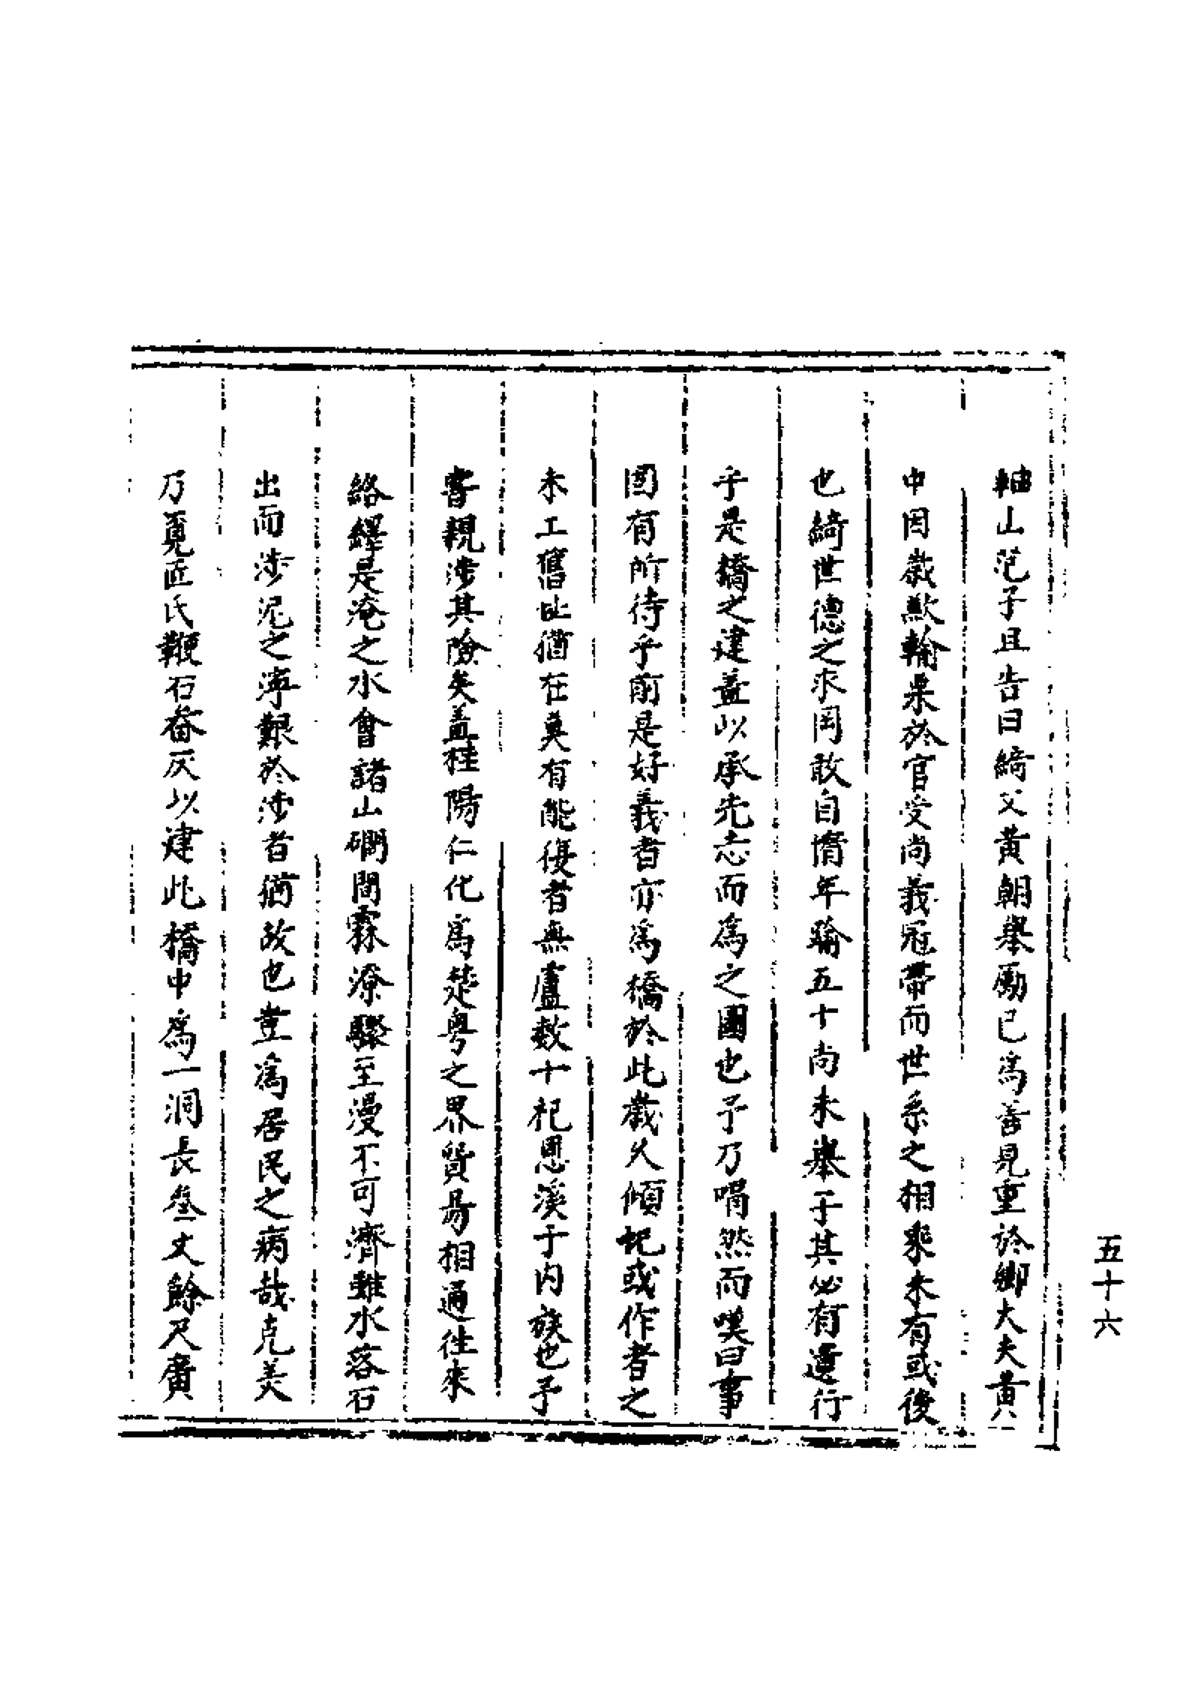 軸山范子且告曰綺父黃朝舉勵已為善見重於鄉大夫黃公
中因歲歉輸粟於官受尚義冠帶而世系之相乘未有或後
也綺世德之求罔敢自惰年踰五十尚未舉子其必有遺行
乎是橋之建蓋以承先志而為之圖也予乃喟然而嘆曰事
固有所待乎前是好義者亦為橋於此歲久傾圮或作者之
未工舊址猶在莫有能復者無慮数十祀恩溪于内族也予
嘗親涉其險矣蓋桂陽仁化為楚粤之界貿易相通往來
絡繹是淹之水會諸山磵間霖潦驟至漫不可濟雖水落石
出而涉泥之濘艱於涉者猶故也豈為居民之病哉克美
乃覓匠氏鞭石畚灰以建此橋中為一洞長叄丈餘尺廣
五十六